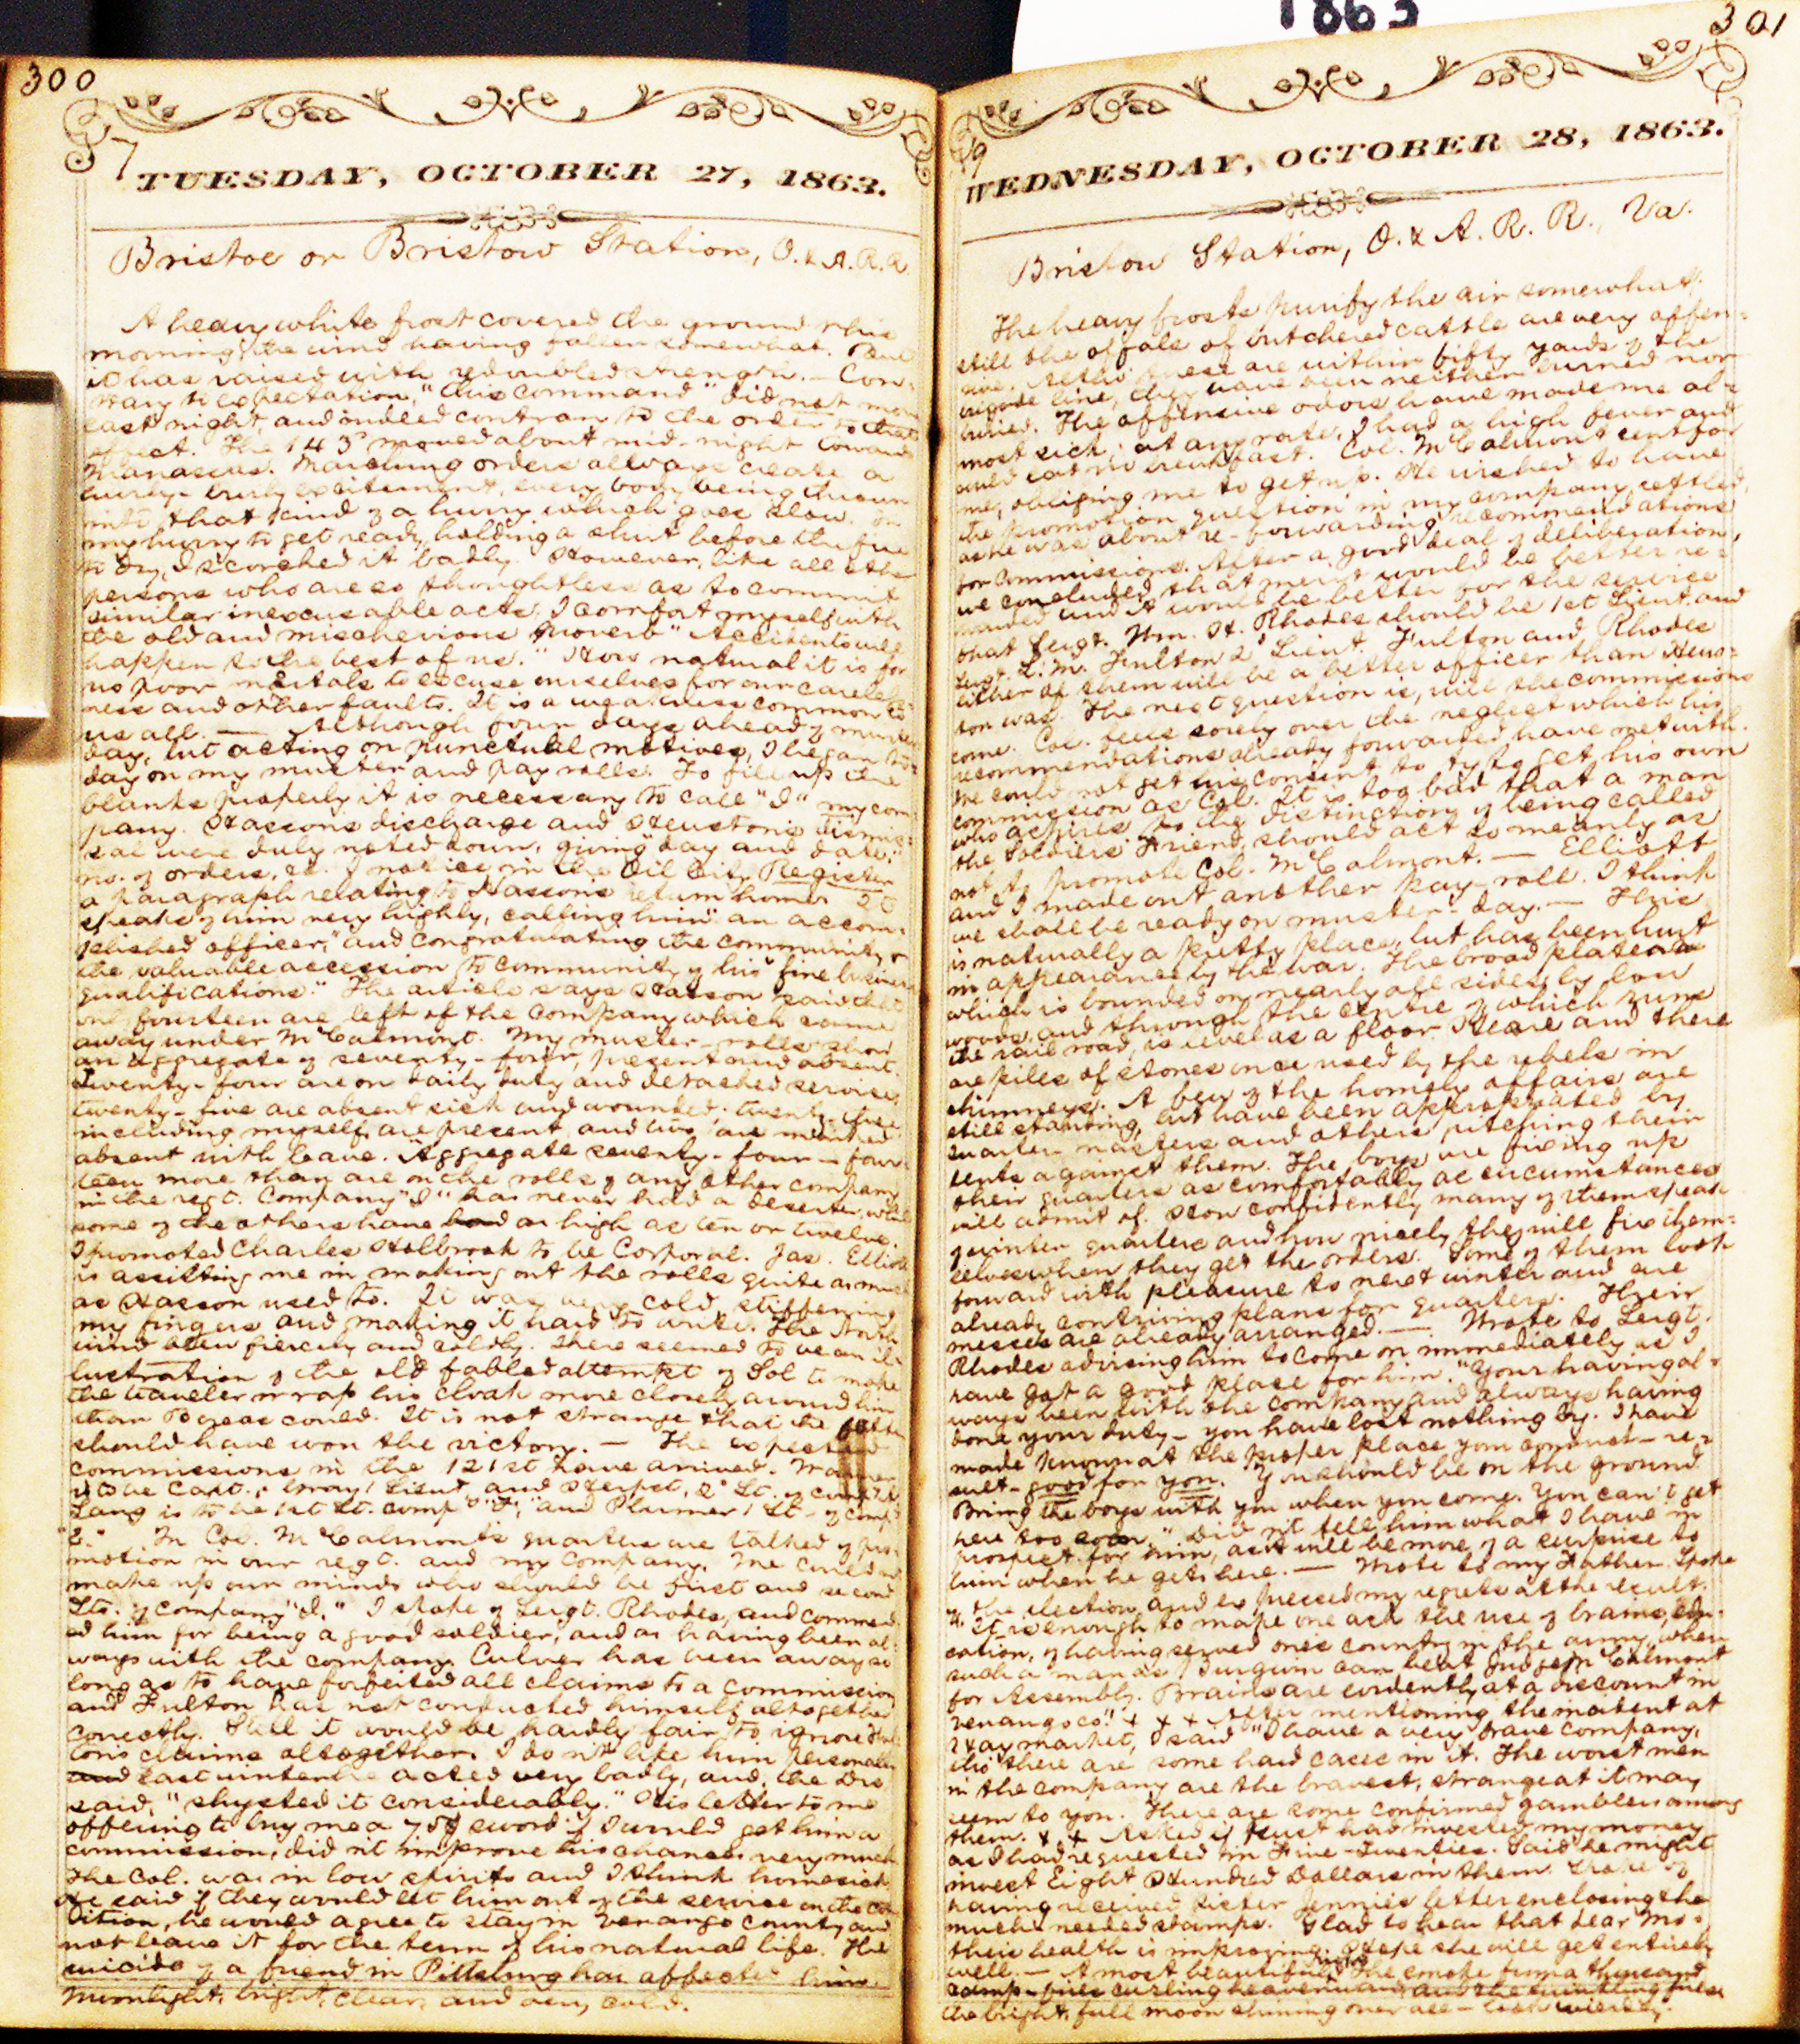 1863
300
7
TUESDAY, OCTOBER 27, 1863.
Bristoe or Bristow Station, O. & A. R. R.
A heavy white frost covered the ground this
morning, the wind having fallen somewhat. But
it has raised with redoubled strength. — Con-
trary to expectation, "this command" did not move
last night, and indeed contrary to the order to that
effect. The 143d moved about mid-night toward
Manassas. Marching orders always create a
hurry-burly excitement, every body being thrown
into that kind of a hurry which goes slow. In
my hurry to get ready, holding a shirt before the fire
to dry, I scorched it badly. However, like all other
persons who are so thoughtless as to commit
similar inexcusable acts, I comfort myself with
the old and mischevious proverb "Accidents will
happen to the best of us." How natural it is for
us poor mortals to excuse ourselves for our careless-
ness and other faults. It is a weakness common to
us all. — Although four days ahead of muster
day, but acting on punctual motives, I began to-
day on my muster and pay rolls. To fill up the
blanks properly it is necessary to call "I" my com-
pany. Hasson's discharge and Heuston's dismis-
sal were duly noted down, giving "day and date,"
no. of orders, &c. I notice in the Oil City Register
a paragraph relating to Hasson's return home. It
speaks of him very highly, calling him "an accom-
plished officer," and congratulating the community
the valuable accession to community of his "fine business
qualifications." The article says Hasson said that
only fourteen are left of the company which came
away under McCalmont. My muster-rolls show
an aggregate of seventy-four, present and absent.
Twenty-four are on daily duty and detached service,
twenty-five are absent sick and wounded; twenty-three
including myself, are present, and two are marked
absent with leave. Aggregate seventy-four — four-
teen more than are on the rolls of any other company
in the regt. Company "I" has never had a deserter, while
some of the others have had as high as ten or twelve.
I promoted Charles Holbrook to be Corporal. Jas. Elliott
is assisting me in making out the rolls quite as much
as Hasson used to. It was very cold, stiffening
my fingers and making it hard to write. The North
wind blew fiercely and coldly. There seemed to be an il-
lustration of the old fabled attempt of Sol to make
the traveler wrap his cloak more closely around him
than Boreas could. It is not strange that the latter
should have won the victory. — The expected
commissions in the 121st have arrived.
is to be Capt., 1 Lieut. and 2d Lt. of comp.
Lang is to be 1st Lt. comp. and Plummer 1 Lt. of comp.
"E." In Col. McCalmont's quarters we talked of pro-
motion in our regt. and my company. We could not
make up our minds who should be first and second
Lts. of company "I." I spoke of Sergt. Rhodes, and commend-
ed him for being a good soldier, and as having been al-
ways with the company. Culver has been away so
long as to have forfeited all claims to a commission
and Fulton has not conducted himself altogether
correctly. Still it would be hardly fair to ignore Ful-
ton's claims altogether. I do n't like him personally
and last winter he acted very badly, and, the Dr.
said, "shysted it considerably." His letter to me
offering to buy me a 75$ sword if I would get him a
commission, did n't improve his chances very much
The Col. was in low spirits and I think homesick
He said if they would let him out of the service on the con-
dition, he would agree to stay in Venango County and
not leave it for the term of his natural life. The
suicide of a friend in Pittsburg has affected him.
Moonlight, bright, clear, and very cold.
301
9
WEDNESDAY, OCTOBER 28, 1863.
Bristow Station, O. & A. R. R., Va.
The heavy frosts purify the air somewhat,
still the offals of butchered cattle are very offen-
sive. Altho' these are within fifty yards of the
brigade line, they have been neither burned nor
buried. The offensive odors have made me al-
most sick; at any rate, I had a high fever and
could eat no breakfast. Col. McCalmont sent for
me, obliging me to get up. He wished to have
the promotion question in my company settled,
as he was about re-forwarding recommendations
for commissions. After a good deal of deliberation,
we concluded that merit would be better re-
warded and it would be better for the service
that Sergt. Wm. H. Rhodes should be 1st Lieut. and
Sergt. L. M. Fulton 2d Lieut. Fulton and Rhodes
either of them will be a better officer than Heus-
ton was. The next question is, will the commissions
come. Col. feels sorely over the neglect which his
recommendations already forwarded have met with.
We could not get his consent to try to get his own
commission as Col. It is too bad that a man
who aspires to the distinction of being called
the Soldiers' Friend, should act so meanly as
not to promote Col. McCalmont. — Elliott
and I made out another pay-roll. I think
we shall be ready on muster-day. — This
is naturally a pretty place, but has been hurt
in appearance by the war. The broad plateau
which is bounded on nearly all sides by low
woods, and through the centre of which runs
the rail road, is level as a floor. Here and there
are piles of stones once used by the rebels in
chimneys. A few of the homely affairs are
still standing, but have been appropriated by
quarter-masters and others pitching their
tents against them. The boys are fixing up
their quarters as comfortably as circumstances
will admit of. How confidently many of them speak
of winter quarters and how nicely they will fix them-
selves when they get the orders. Some of them look
forward with pleasure to next winter and are
already contriving plans for quarters. Their
messes are already arranged. — Wrote to Sergt.
Rhodes advising him to come on immediately as I
have got a good place for him. "Your having al-
ways been with the company and always having
done your duty — you have lost nothing by. I have
made known at the proper place your conduct — re-
sult — good for you. You should be on the ground
Bring the boys with you when you come. You can't get
here too soon." Did n't tell him what I have in
prospect for him, as it will be more of a surprise to
him when he gets here. — Wrote to my Father. Spoke
of the election and expressed my regrets at the result.
"It is enough to make one ask the use of brains, edu-
cation, of having served one's country in the army, when
such a man as can beat Judge McCalmont
for Assembly. Brains are evidently at a discount in
Venango co." x x x After mentioning the incident at
Haymarket, I said "I have a very brave company,
tho' there are some hard cases in it. The worst men
in the company are the bravest, strange as it may
seem to you. There are some confirmed gamblers among
them. x x Asked if had invested my money
as I had requested in Five-Twenties. Said he might
invest Eight Hundred Dollars in them. Spoke of
having received sister Jennie's letter enclosing the
much needed stamps. Glad to hear that dear Mo-
ther's health is improving. Hope she will get entirely
well. — A most beautiful night. The smoke from a thousand
camp-fires curling heavenward and the twinkling fires
the bright, full moon shining over all — look weirdly.